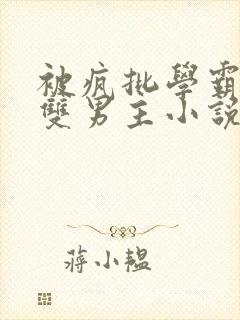 被疯批學霸
雙男主小説
蔣小韞